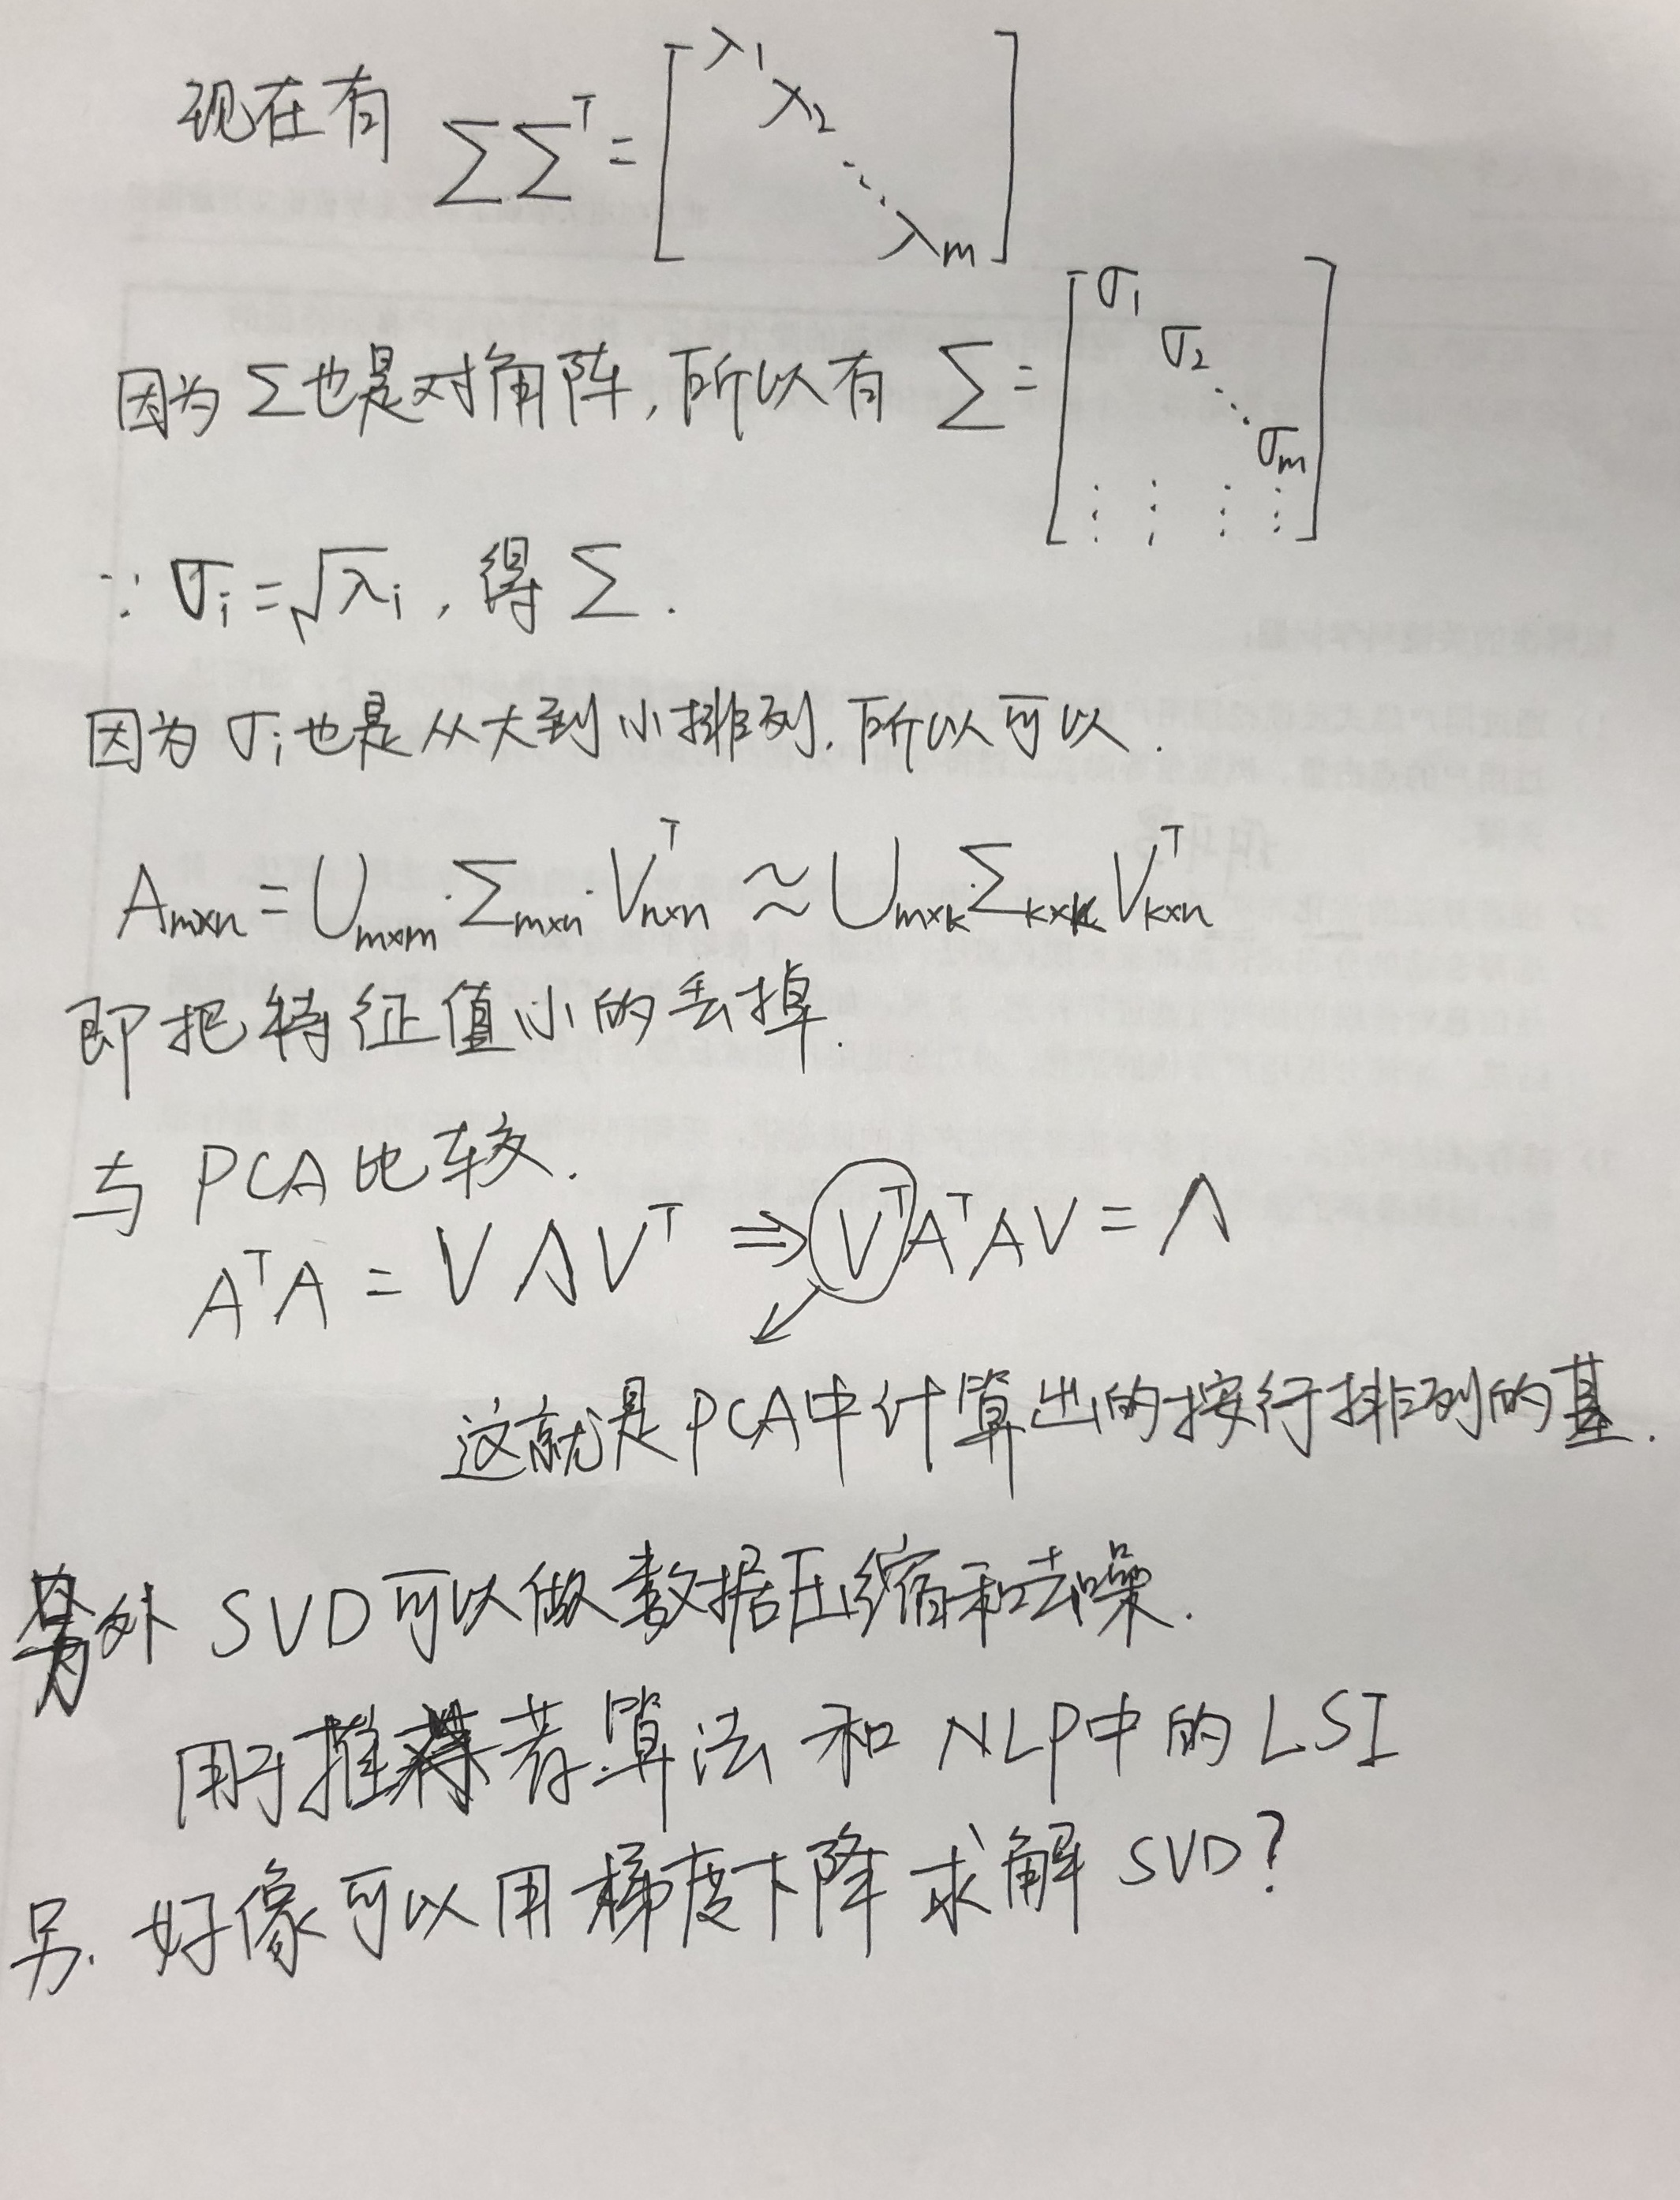 现在有 ΣΣᵀ = [λ₁ λ₂ ⋱ λₘ]
因为Σ也是对角阵,所以有 Σ = [σ₁ σ₂ ⋱ σₘ ⋮ ⋮ ⋮ ⋮]
∵ σᵢ = √λᵢ , 得 Σ.
因为σᵢ也是从大到小排列.所以可以.
Aₘₓₙ = Uₘₓₘ·Σₘₓₙ·Vᵀₙₓₙ ≈ Uₘₓₖ·Σₖₓₖ Vᵀₖₓₙ
即把特征值小的丢掉.
与 PCA 比较.
AᵀA = VΛVᵀ ⇒ VᵀAᵀAV = Λ
这就是PCA中计算出的按行排列的基.
另外 SVD可以做数据压缩和去噪.
用于推荐算法 和 NLP中的LSI
另. 好像可以用梯度下降求解 SVD?